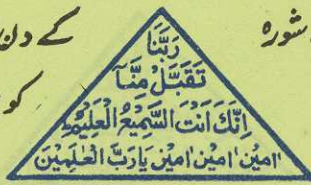 شورہ
کے دن
کو
رَبَّنَا
تَقَبَّلْ مِنَّا
اِنَّكَ اَنْتَ السَّمِيْعُ الْعَلِيْمُ
اٰمِيْن اٰمِيْن اٰمِيْن يَارَبَّ الْعٰلَمِيْنَ